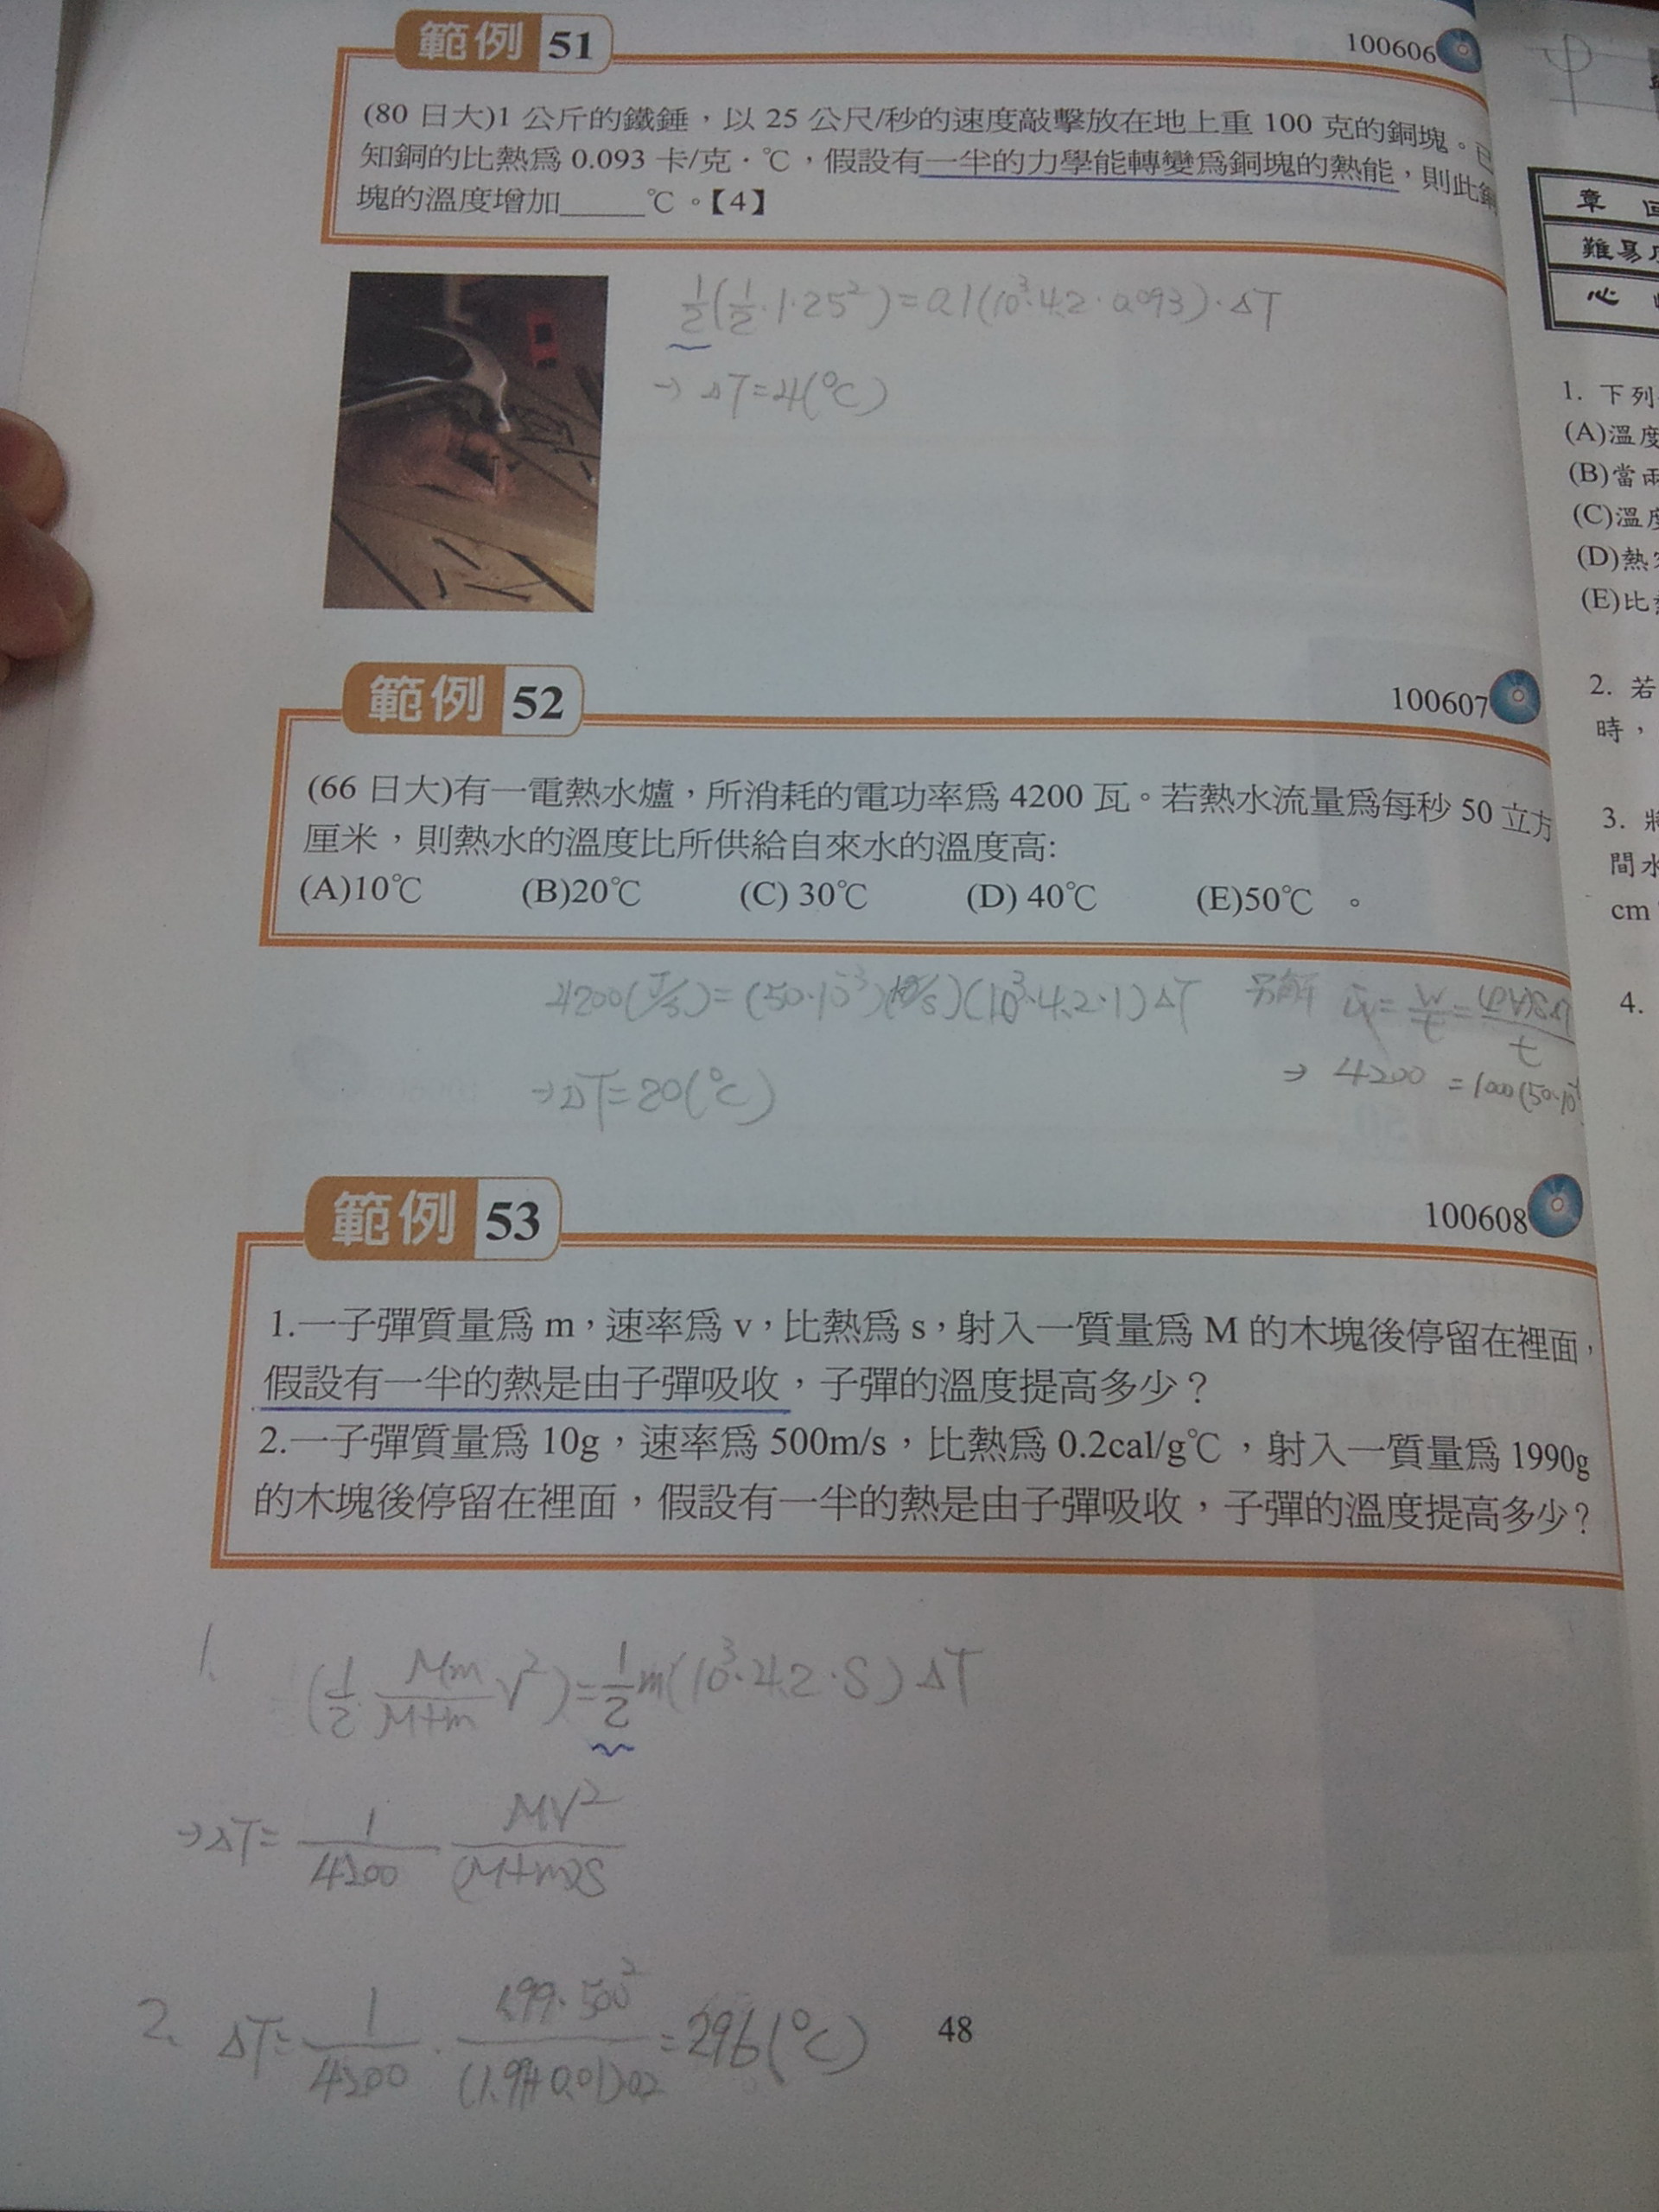 範例 51
100606
(80 日大)1 公斤的鐵錘，以 25 公尺/秒的速度敲擊放在地上重 100 克的銅塊。已
知銅的比熱爲 0.093 卡/克．℃，假設有一半的力學能轉變爲銅塊的熱能，則此銅
塊的溫度增加_____℃。【4】
½(½·1·25²)=0.1(10³·4.2·0.093)·ΔT
→ ΔT=4(℃)
範例 52
100607
(66 日大)有一電熱水爐，所消耗的電功率爲 4200 瓦。若熱水流量爲每秒 50 立方
厘米，則熱水的溫度比所供給自來水的溫度高:
(A)10℃ (B)20℃ (C) 30℃ (D) 40℃ (E)50℃ 。
4200(J/s)=(50·10⁻³)(kg/s)(10³·4.2·1)ΔT
→ΔT=20(℃)
另解
→ 4200 =1000(50·10
範例 53
100608
1.一子彈質量爲 m，速率爲 v，比熱爲 s，射入一質量爲 M 的木塊後停留在裡面，
假設有一半的熱是由子彈吸收，子彈的溫度提高多少？
2.一子彈質量爲 10g，速率爲 500m/s，比熱爲 0.2cal/g℃，射入一質量爲 1990g
的木塊後停留在裡面，假設有一半的熱是由子彈吸收，子彈的溫度提高多少？
1. (½·Mm/(M+m) V²)=½m(10³·4.2·S)ΔT
→ΔT= 1/4200 · MV²/(M+m)S
2. ΔT= 1/4200 · 1.99·500²/(1.99+0.01)0.2 =296(℃)
48
章
難易
心
1. 下列
(A)溫度
(B)當兩
(C)溫度
(D)熱
(E)比
2. 若
時，
3. 將
間水
cm
4.